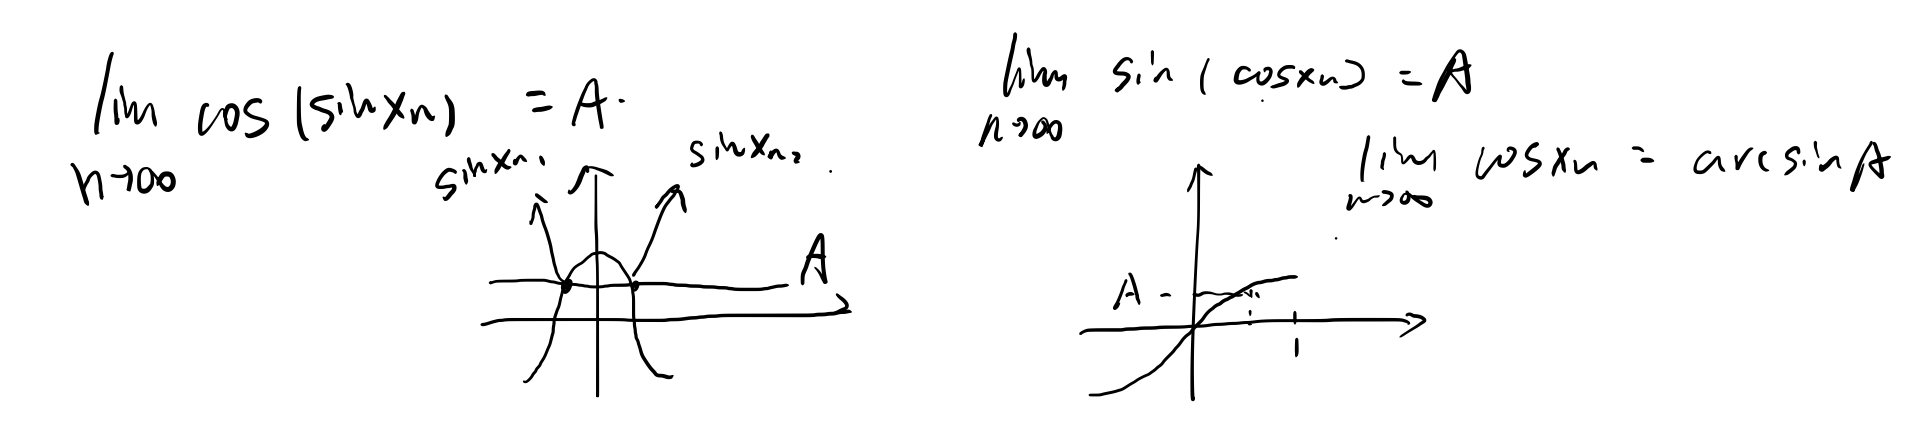 lim cos (sin xn) = A.
n→∞
sin xn₁
sin xn₂
A
lim sin (cos xn) = A
n→∞
lim cos xn = arcsin A
n→∞
A
1